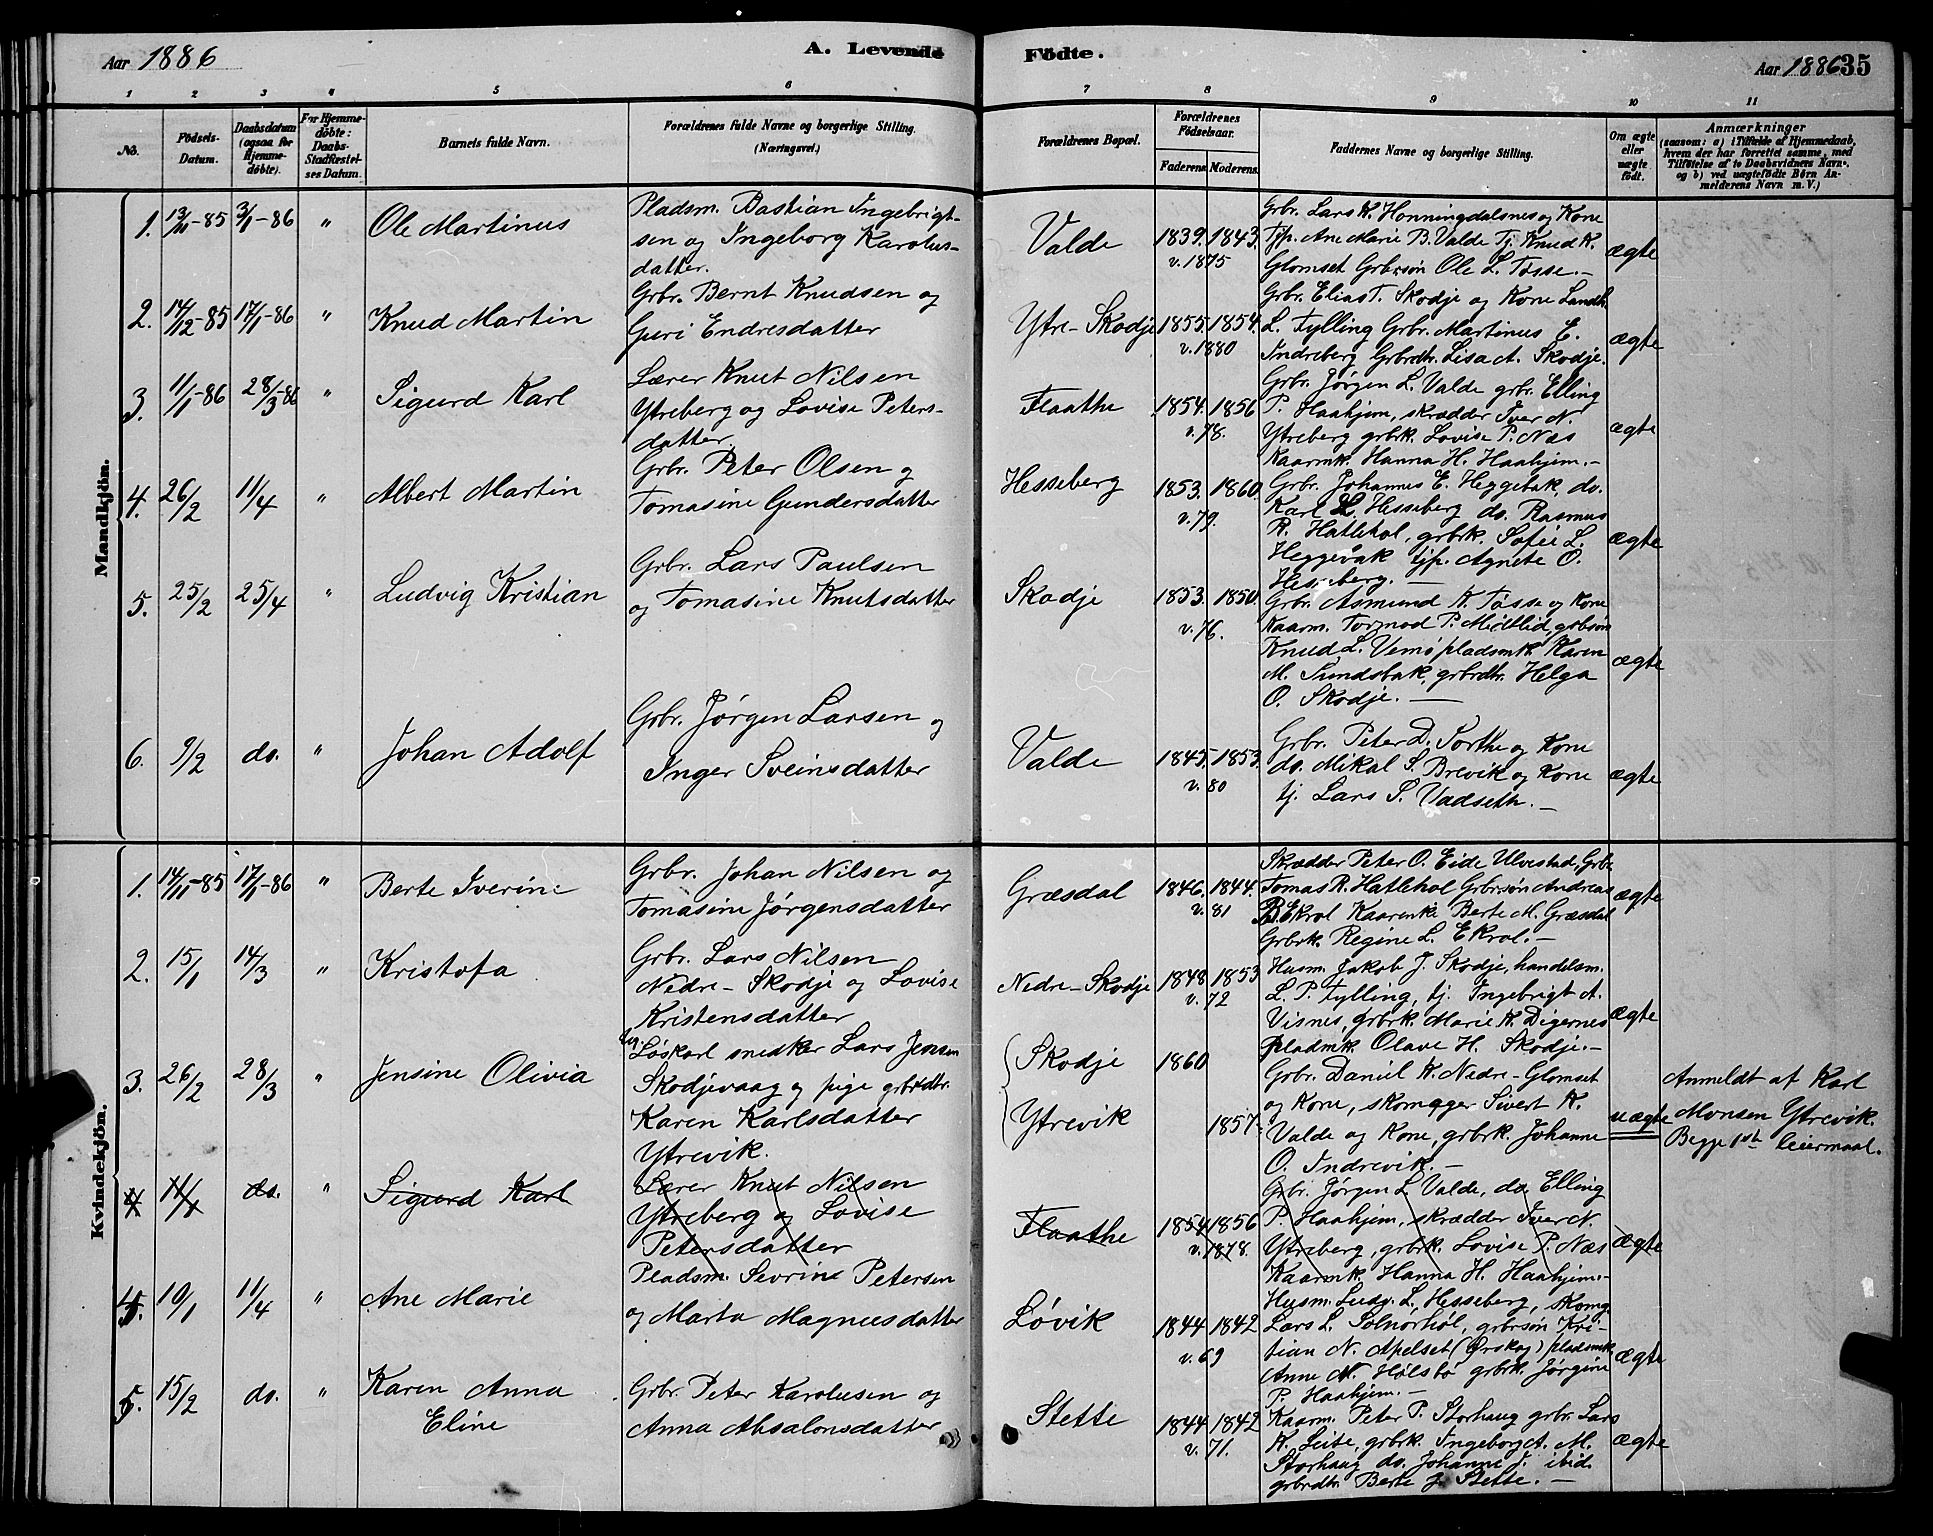 Aar 1886
A. Levende Födte.
Aar 1886 35
1 2 3 4 5 6 7 8 9 10 11
No.
Födsels-Datum.
Daabsdatum (ogsaa for Hjemmedöbte).
For Hjemmedöbte: Daabs-Stadfæstelses Datum.
Barnets fulde Navn.
Forældrenes fulde Navne og borgerlige Stilling.
(Næringsvei.)
Forældrenes Bopæl.
Forældrenes Födselsaar.
Faderens. Moderens.
Faddernes Navne og borgerlige Stilling.
Om ægte eller uægte födt.
Anmærkninger
(saasom: a) i Tilfælde af Hjemmedaab,
hvem der har forrettet samme, med
Tilföielse af to Daabsvidners Navn,
og b) ved uægtefödte Börn An-
melderens Navn m. V.)
Mandkjön.
1. 13/11-85 3/1-86 " Ole Martinus
Pladsm. Bastian Ingebrigt-
sen og Ingeborg Karolus-
datter.
Valde 1839. 1843.
v. 1875
Grbr. Lars K. Honningdalsnes og Kone
Tjp. Ane Marie B. Valde Tj. Knud K.
Glomset Grbrsön Ole L. Tøsse.-
ægte
2. 14/12-85 17/1-86 " Knud Martin
Grbr. Bernt Knudsen og
Guri Endresdatter
Ytre-Skodje 1855. 1854.
v. 1880
Grbr. Elias T. Skodje og Kone Landh.
L. Tylling Grbr. Martinus E.
Indreberg Grbrdtr. Lisa A. Skodje.
ægte
3. 11/1-86 28/3-86 " Sigurd Karl
Lærer Knut Nilsen
Ytreberg og Lovise Peters-
datter.
Flaathe 1854. 1856
v. 78.
Grbr. Jørgen L. Valde grbr. Elling
P. Haahjem, skrædder Iver N.
Ytreberg grbrk. Lovise P. Næs
Kaarmk. Hanna H. Haahjem.-
ægte
4. 26/2 11/4 " Albert Martin
Grbr. Peter Olsen og
Tomasine Gundersdatter
Hesseberg 1853. 1860.
v. 79.
Grbr. Johannes E. Heggebak, do.
Karl L. Hesseberg do. Rasmus
R. Hatlehol, grbrk. Sofie L.
Heggevak tjp. Agnete O.
Hesseberg. —
ægte
5. 25/2 25/4 " Ludvig Kristian
Grbr. Lars Paulsen
og Tomasine Knutsdatter
Skodje 1853. 1850.
v. 76.
Grbr. Asmund K. Tøsse og Kone
Kaarm. Tormod P. Midtlid, grbrsøn
Knud L. Vemø pladsmk. Karen
M. Sundsbak, grbrdtr. Helga
O. Skodje. —
ægte
6. 9/2 do. " Johan Adolf
Grbr. Jørgen Larsen og
Inger Sveinsdatter
Valde 1845. 1853.
v. 80
Grbr. Peter D. Torthe og Kone
do. Mikal S. Brevik og Kone
tj. Lars S. Vadseth.-
ægte
Kvindekjön.
1. 14/11-85 17/1-86 " Berte Iverine
Grbr. Johan Nilsen og
Tomasine Jørgensdatter
Græsdal 1846. 1844.
v. 81
Skrædder Peter O. Eide Ulvestad, Grbr.
Tomas R. Hatlehol Grbrsön Andreas
B. Ekrol Kaarenke Berte M. Græsdal
Grbrk. Regine L. Ekrol.-
ægte
2. 15/1 14/3 " Kristofa
Grbr. Lars Nilsen
Nedre-Skodje og Lovise
Kristensdatter
Nedre-Skodje 1848 1853
v. 72
Husm. Jakob J. Skodje, handelsm.
L. P. Tylling, tj. Ingebrigt A.
Visnes, grbrk. Marie K. Digernes
pladmk. Olave H. Skodje.-
ægte
3. 26/2 28/3 " Jensine Olivia
Ug. Løskarl snedker Lars Jensen
Skodjevaag og pige grbrdtr.
Karen Karlsdatter
Ytrevik.
Skodje 1860
Ytrevik 1857.
Grbr. Daniel K. Nedre-Glomset
og Kone, skomager Sivert K.
Valde og Kone, grbrk. Johanne
O. Indrevik.-
uægte
Anmeldt af Karl
Monsen Ytrevik.
Begge 1ste Leiermaal.
4 11/1 do. " Sigurd Karl
Lærer Knut Nilsen
Ytreberg og Lovise
Petersdatter
Flaathe 1854 1856
v. 1878.
Grbr. Jørgen L. Valde, do. Elling
P. Haahjem, skrædder Iver N.
Ytreberg, grbrk. Lovise P. Næs
Kaarmk. Hanna H. Haahjem.-
ægte
4. 10/1 11/4 " Ane Marie
Pladsm. Sevrine Petersen
og Marta Magnusdatter
Løvik 1844 1842
v. 69
Husm. Ludv. L. Hesseberg, skomg.
Lars L. Solnørhøl, grbrsøn Kri-
tian N. Apelset (Ørskog) pladsmk.
Anne N. Holsbø grbrk. Jørgine
P. Haahjem.-
ægte
5. 15/2 do. " Karen Anna
Eline
Grbr. Peter Karolusen og
Anna Absalonsdatter
Stette 1844 1842
v. 71.
Kaarm. Peter P. Storhaug grbr. Lars
K. Leite, grbrk. Ingeborg A. M.
Storhaug do. Johanne J. ibid.
grbrdtr. Berte J. Stette.-
ægte